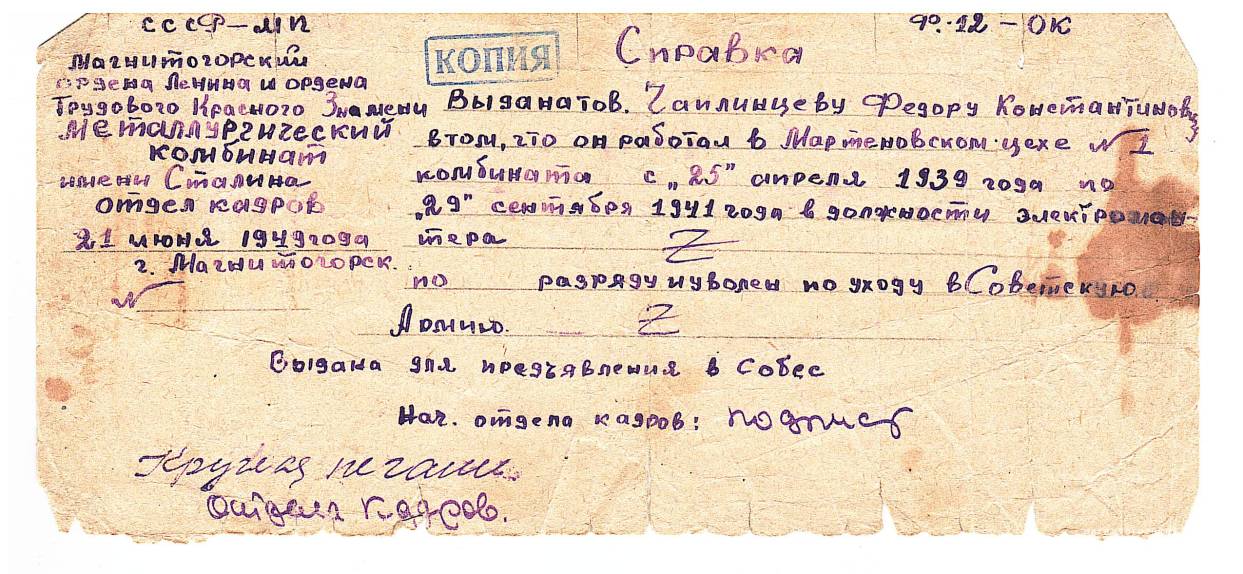 СССР – МП
Магнитогорский
ордена Ленина и ордена
Трудового Красного Знамени
Металлургический
комбинат
имени Сталина
отдел кадров
21 июня 1949 года
г. Магнитогорск.
N
Ф. 12 – ОК
КОПИЯ
Справка
Выдана тов. Чаплинцеву Федору Константиновичу
в том, что он работал в Мартеновском цехе N 1
комбината с „25" апреля 1939 года по
„29" сентября 1941 года в должности электромон-
тера Z
по разряду и уволен по уходу в Советскую
Армию. Z
Выдана для предъявления в Собес
Нач. отдела кадров: подпись
Круглая печать
Отдела Кадров.